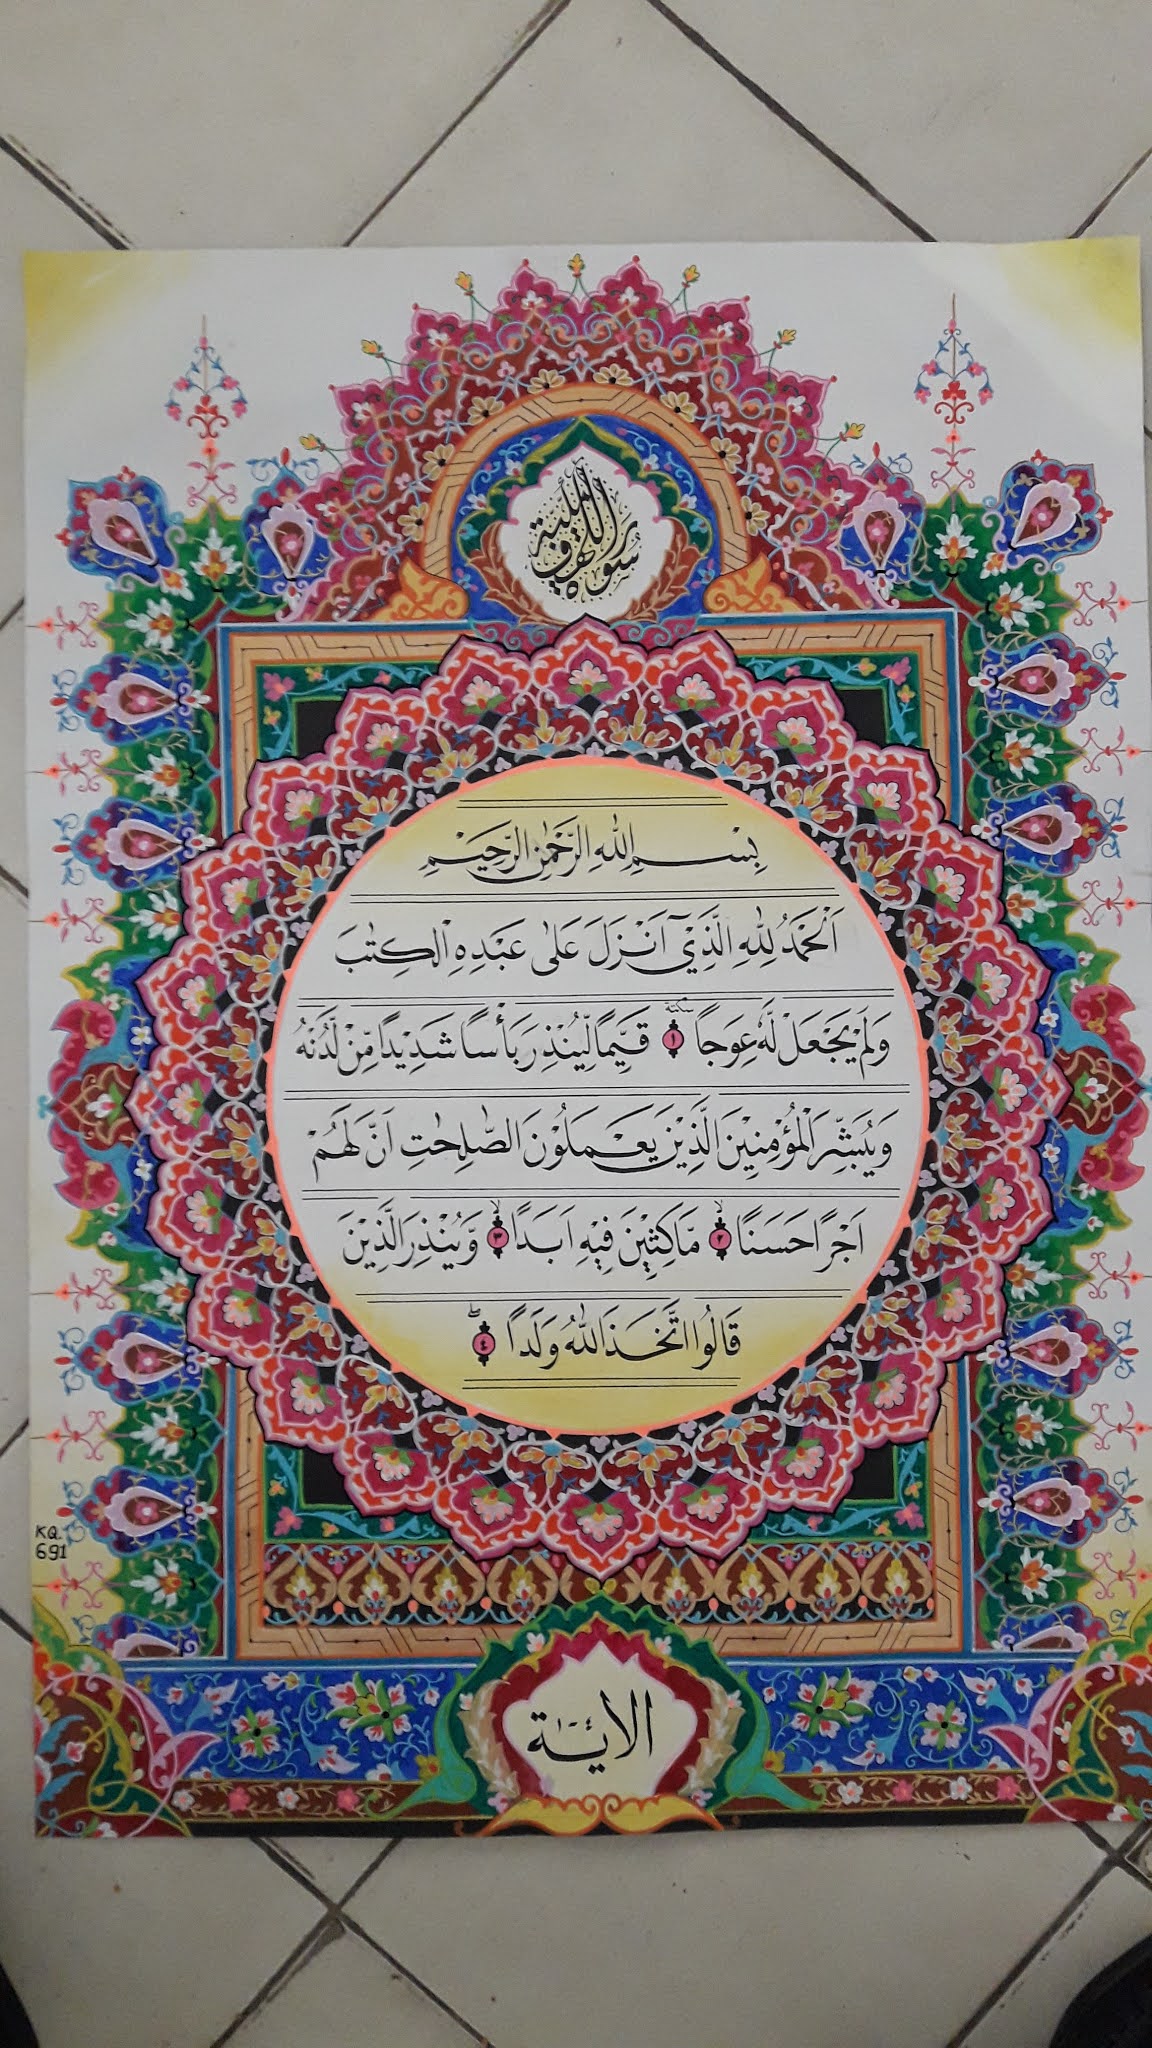 سورة الكهف
بِسْمِ اللهِ الرَّحْمٰنِ الرَّحِيْمِ
اَلْحَمْدُ لِلّٰهِ الَّذِيْٓ اَنْزَلَ عَلٰى عَبْدِهِ الْكِتٰبَ
وَلَمْ يَجْعَلْ لَّهٗ عِوَجًا ۜ ١ قَيِّمًا لِّيُنْذِرَ بَأْسًا شَدِيْدًا مِّنْ لَّدُنْهُ
وَيُبَشِّرَ الْمُؤْمِنِيْنَ الَّذِيْنَ يَعْمَلُوْنَ الصّٰلِحٰتِ اَنَّ لَهُمْ
اَجْرًا حَسَنًا ۙ ٢ مَّاكِثِيْنَ فِيْهِ اَبَدًا ۙ ٣ وَّيُنْذِرَ الَّذِيْنَ
قَالُوا اتَّخَذَ اللّٰهُ وَلَدًا ٤
KQ.
691
الاية